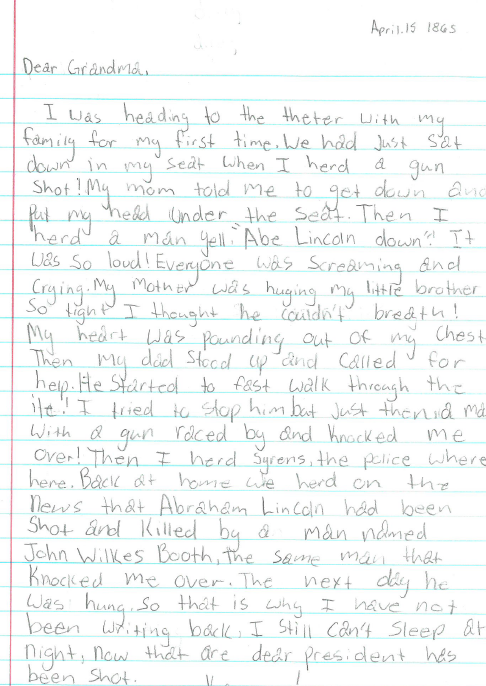 April.15 1865
Dear Grandma,
I was heading to the theter with my
family for my first time. We had Just sat
down in my seat when I herd a gun
shot! My mom told me to get down and
put my head under the seat. Then I
herd a man yell. "Abe Lincoln down"! It
was so loud! Everyone was screaming and
crying. My Mother was huging my little brother
so tight I thought he couldn't breath!
My heart was pounding out of my chest
Then my dad stood up and called for
help. He started to fast walk through the
ile"! I tried to stop him but just then a ma
with a gun raced by and knocked me
over! Then I herd Syrens, the police where
here. Back at home we herd on the
news that Abraham Lincoln had been
shot and killed by a man named
John Wilkes Booth, the same man that
knocked me over. The next day he
was hung. So that is why I have not
been writing back, I still can't sleep at
night, now that are dear president has
been shot.